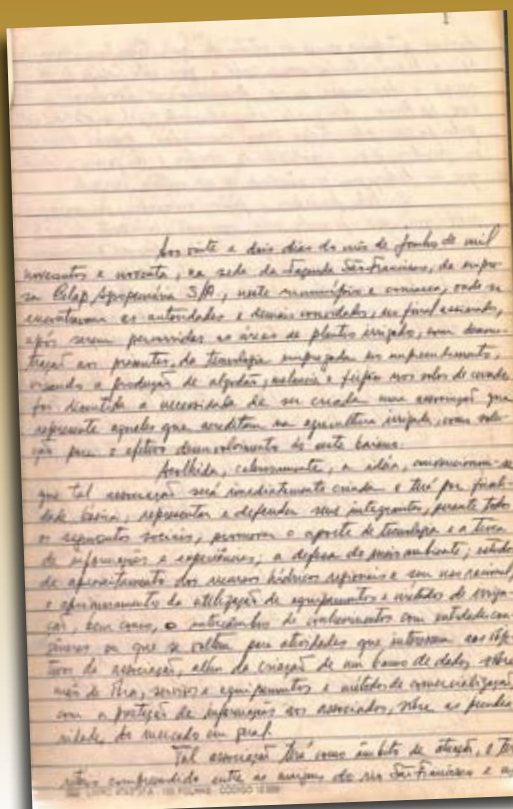 Aos vinte e dois dias do mês de Junho de mil
novecentos e noventa, na sede da Fazenda São Francisco, da empre-
sa Celap Agropecuária S/A, neste município e comarca, onde se
encontravam as autoridades e demais convidados, ao final assinados,
após serem percorridas as áreas de plantio irrigado, com demons-
tração aos presentes, da tecnologia empregada no empreendimento,
visando a produção de algodão, melancia e feijão nos solos de cerrado
foi discutida a necessidade de ser criada uma associação que
represente aqueles que acreditam na agricultura irrigada, como solu-
ção para o efetivo desenvolvimento do oeste baiano.
Acolhida, calorosamente, a idéia,
que tal associação será imediatamente criada e terá por finali-
dade básica, representar e defender seus integrantes, perante todos
os segmentos sociais, promover o aporte de tecnologia e a troca
de informações e experiências; a defesa do meio ambiente; estudo
de aproveitamento dos recursos hídricos regionais e seu uso racional,
e aprimoramento da utilização de equipamentos e métodos de irriga-
ção, bem como, o intercâmbio de conhecimentos com entidades con-
gêneres ou que se voltem para atividades que interessem aos obje-
tivos da associação, além da criação de um banco de dados sobre
mão de obra, serviços e equipamentos e métodos de comercialização,
com a prestação de informações aos associados, sobre as peculia-
ridades do mercado em geral.
Tal associação terá como âmbito de atuação, o ter-
ritório compreendido entre as margens do rio São Francisco e as